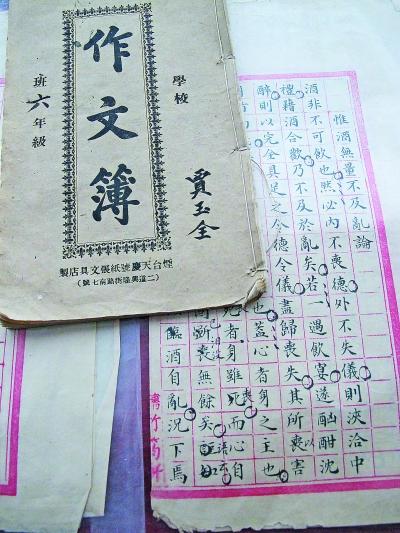 學校
賈玉全
作文簿
班六年級
煙台天慶號紙張文具店製
(二道興隆街路南七號)
惟酒無量不及亂論
酒非不可飲也然必內不喪德外不失儀則浹洽中
禮藉酒合歡乃不及於亂矣若一過飲宴遂酗酣沈
醉則以完全具足之令德令儀盡歸喪失其所以喪害
也蓋心者身之主也
死者身雖死而心自
喪無餘矣
臨酒自亂況下焉